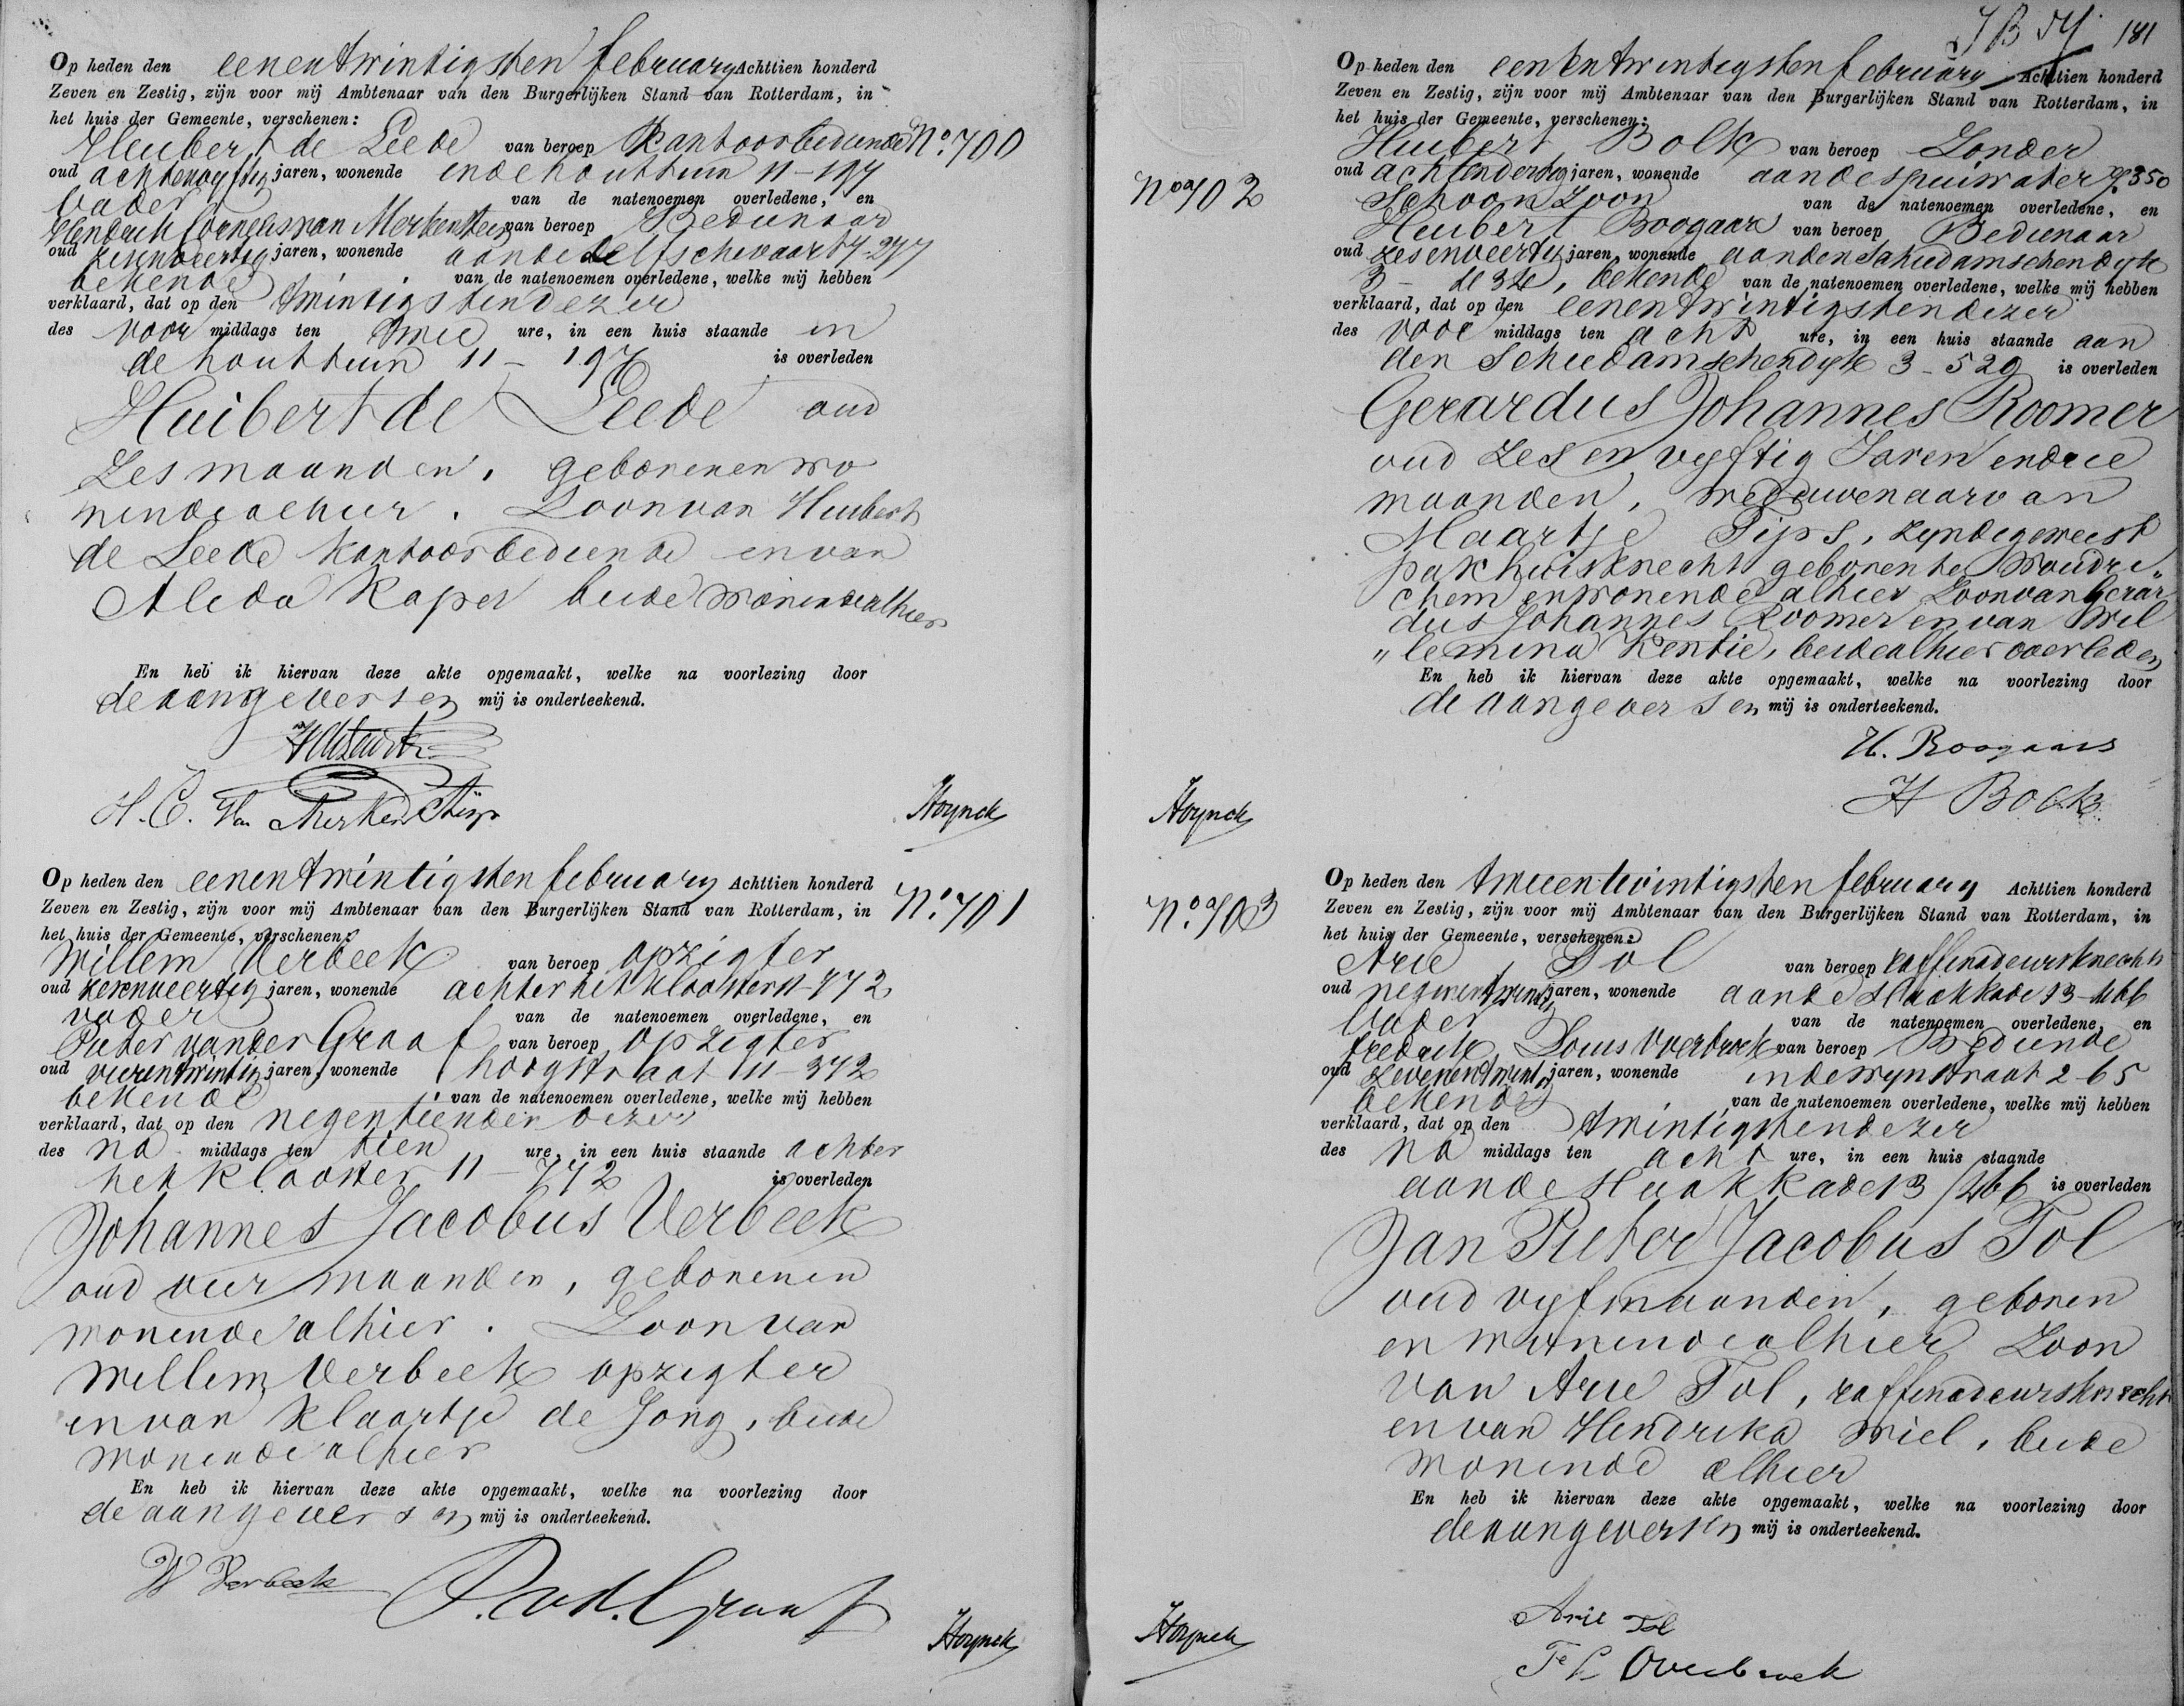 Op heden den eenentwintigsten february Achttien honderd
Zeven en Zestig, zijn voor mij Ambtenaar van den Burgerlijken Stand van Rotterdam, in
het huis der Gemeente, verschenen:
Huibert de Leede van beroep Kantoorbediende No. 700
oud achtenvyftig jaren, wonende indehouttuin 11-197
vader van de natenoemen overledene, en
Hendrik Cornelis van Merkensteijn van beroep Bedienaar
oud zesenveertig jaren, wonende aandedelfschevaart 7-297
bekende van de natenoemen overledene, welke mij hebben
verklaard, dat op den twintigstendezer
des voor middags ten twee ure, in een huis staande in
de houttuin 11-197 is overleden
Huibert de Leede oud
Zes maanden, geborenenwo
nendealhier. Zoonvan Huibert
de Leede Kantoorbediende envan
Alida Kaper beide wonendealhier
En heb ik hiervan deze akte opgemaakt, welke na voorlezing door
deaangevers en mij is onderteekend.
H. C. Van Merkensteijn
Hoynck
Op heden den eenentwintigsten february Achttien honderd
Zeven en Zestig, zijn voor mij Ambtenaar van den Burgerlijken Stand van Rotterdam, in No. 701
het huis der Gemeente, verschenen:
Willem Verbeek van beroep opzigter
oud zesenveertig jaren, wonende achterhetklooster 11-772
vader van de natenoemen overledene, en
Pieter vander Graaf van beroep opzigter
oud vierentwintig jaren, wonende hoogstraat 11-372
bekende van de natenoemen overledene, welke mij hebben
verklaard, dat op den negentienden dezer
des na middags ten tien ure, in een huis staande achter
het klooster 11-772 is overleden
Johannes Jacobus Verbeek
oud vier maanden, geborenen
wonende alhier. Zoonvan
Willem Verbeek opzigter
envan Klaartje de Jong, beide
wonendealhier
En heb ik hiervan deze akte opgemaakt, welke na voorlezing door
deaangevers en mij is onderteekend.
W Verbeek P. v. d. Graaf
Hoynck
181
Op heden den eenentwintigsten february Achttien honderd
Zeven en Zestig, zijn voor mij Ambtenaar van den Burgerlijken Stand van Rotterdam, in
het huis der Gemeente, verschenen:
Huibert Bolk van beroep Zonder
oud achtendertig jaren, wonende aandespuiwater 350
No. 702
Schoonzoon van de natenoemen overledene, en
Huibert Boogaars van beroep Bedienaar
oud zesenveertig jaren, wonende aanden Schiedamschendyk
3 - bekende van de natenoemen overledene, welke mij hebben
verklaard, dat op den eenentwintigstendezer
des voor middags ten acht ure, in een huis staande aan
den Schiedamschendyk 3-529 is overleden
Gerardus Johannes Roomer
oud Zes en vyftig Jaren endrie
maanden, weduwenaarvan
Maartje Pips, zyndegeweest
pakhuisknecht geborente Woudri„
chem enwonende alhier Zoonvan Gerar
dus Johannes Roomer en van Wil
„lemina Kentie, beidealhieroverleden
En heb ik hiervan deze akte opgemaakt, welke na voorlezing door
de aangevers en mij is onderteekend.
H. Boogaars
H Bolk
Hoynck
Op heden den tweeentwintigsten february Achttien honderd
Zeven en Zestig, zijn voor mij Ambtenaar van den Burgerlijken Stand van Rotterdam, in
No. 703
het huis der Gemeente, verschenen:
Arie Tol van beroep raffinadeursknecht
oud negenentwintig jaren, wonende aande Haakkade 13-466
Vader van de natenoemen overledene, en
fredrik Louis Overbroek van beroep Bediende
oud zevenentwintig jaren, wonende indewynstraat 2-65
bekende van de natenoemen overledene, welke mij hebben
verklaard, dat op den twintigstendezer
des na middags ten acht ure, in een huis staande
aande Haakkade 13/466 is overleden
Jan Pieter Jacobus Tol
oud vyfmaanden, geboren
en wonendealhier Zoon
van Arie Tol, raffinadeursknecht
envan Hendrika Wiel, beide
wonende alhier
En heb ik hiervan deze akte opgemaakt, welke na voorlezing door
deaangevers en mij is onderteekend.
Arie Tol
F L Overbroek
Hoynck